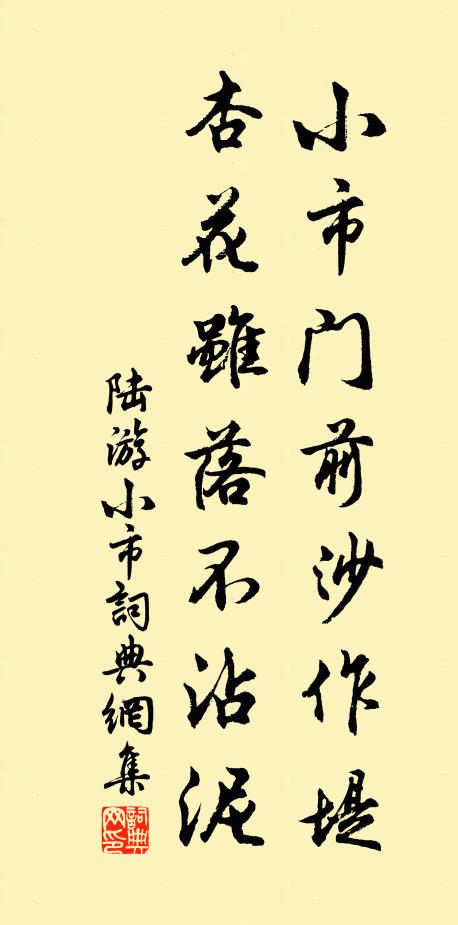 小市门前沙作堤
杏花雖落不沾泥
陆游小市詞典網集
詞典
网印